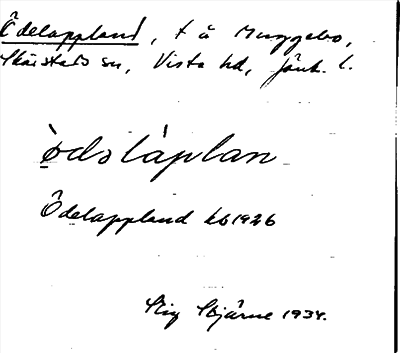 Ödelappland, t å Muggebo,
Skärstads sn, Vista hd, Jönk. l.
ödslàplan
Ödelappland kb 1926
Stig Stjärne 1934.